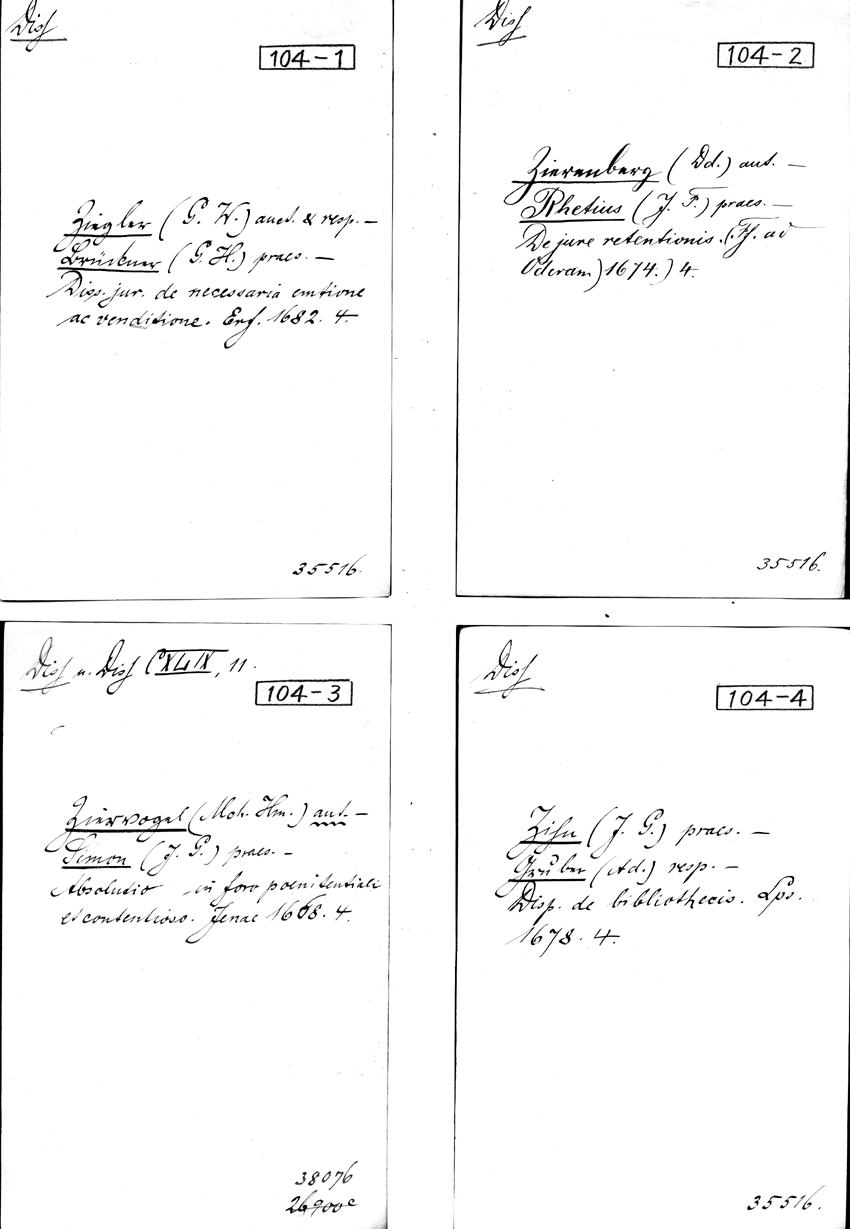 Diss
104-1
Ziegler (G. W.) auct. & resp. —
Brückner (G. H.) praes. —
Diss. jur. de necessaria emtione
ac venditione. Erf. 1682. 4.
35516.
Diss
104-2
Zierenberg (Dd.) aut. —
Rhetius (J. F.) praes. —
De jure retentionis. (Ff. ad
Oderam) 1674.) 4.
35516.
Diss u. Diss CXLIX, 11.
104-3
Ziervogel (Mch. Hm.) aut. —
Simon (J. G.) praes. —
Absolutio in foro poenitentiali
et contentioso. Jenae 1668. 4.
38076
26900e
Diss
104-4
Zihn (J. G.) praes. —
Gruber (Ad.) resp. —
Disp. de bibliothecis. Lps.
1678. 4.
35516.